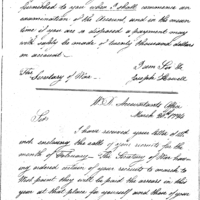 furnished to you when I shall commence an
examination of the Account, and in the mean
time if you are so disposed a payment may
with safety be made of twenty thousand dollars
on account —
I am Sir &c
The Secretary of War. Joseph Howell
W. D. Accountants Office
March 1794
Sir
I have received your letter of
inst. inclosing the rolls of your recruits for the
month of February — the Secretary of War having
ordered certain of your recruits to march to
West point they will be paid the arrears in this
year at that place for yourself and those of your